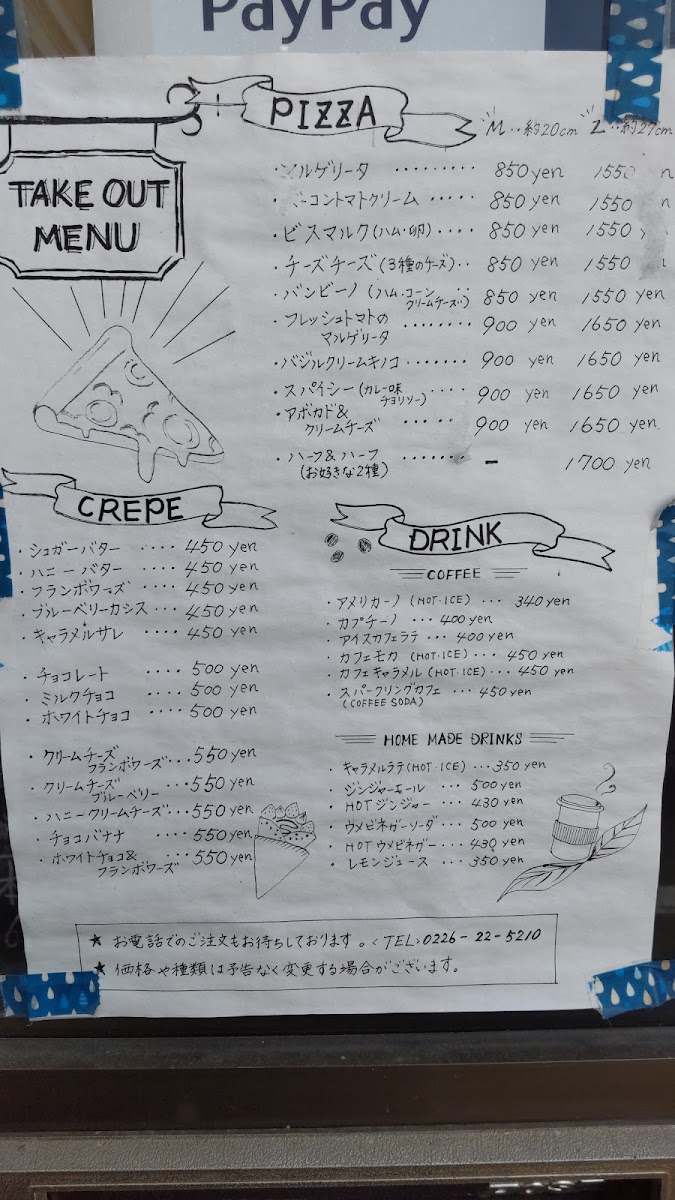 PayPay
TAKE OUT
MENU
PIZZA
M‥約20cm L‥約27cm
マルゲリータ ········· 850 yen 1550
ベーコントマトクリーム ····· 850 yen 1550
・ビスマルク(ハム・卵) ···· 850 yen 1550
・チーズチーズ(3種のチーズ)‥ 850 yen 1550
・バンビーノ(ハム・コーン
クリームチーズ‥) 850 yen 1550 yen
・フレッシュトマトの
マルゲリータ ········ 900 yen 1650 yen
・バジルクリームキノコ ······· 900 yen 1650 yen
・スパイシー(カレー味
チョリソー) ···· 900 yen 1650 yen
・アボカド&
クリームチーズ ····· 900 yen 1650 yen
・ハーフ&ハーフ
(お好きな2種) ······· - 1700 yen
CREPE
・シュガーバター ···· 450 yen
・ハニーバター ···· 450 yen
・フランボワーズ ···· 450 yen
・ブルーベリーカシス ··· 450 yen
・キャラメルサレ ···· 450 yen
・チョコレート ···· 500 yen
・ミルクチョコ ···· 500 yen
・ホワイトチョコ ···· 500 yen
・クリームチーズ
フランボワーズ ··· 550 yen
・クリームチーズ
ブルーベリー ···· 550 yen
・ハニークリームチーズ ··· 550 yen
・チョコバナナ ···· 550 yen
・ホワイトチョコ&
フランボワーズ ··· 550 yen
DRINK
COFFEE
・アメリカーノ(HOT・ICE) ··· 340 yen
・カプチーノ ··· 400 yen
・アイスカフェラテ ··· 400 yen
・カフェモカ (HOT・ICE) ··· 450 yen
・カフェキャラメル (HOT・ICE) ··· 450 yen
・スパークリングカフェ ··· 450 yen
(COFFEE SODA)
HOME MADE DRINKS
・キャラメルラテ(HOT・ICE) ··· 350 yen
・ジンジャーエール ··· 500 yen
・HOTジンジャー ··· 430 yen
・ウメビネガーソーダ ··· 500 yen
・HOTウメビネガー ··· 430 yen
・レモンジュース ··· 350 yen
★ お電話でのご注文もお待ちしております。<TEL>0226-22-5210
★ 価格や種類は予告なく変更する場合がございます。